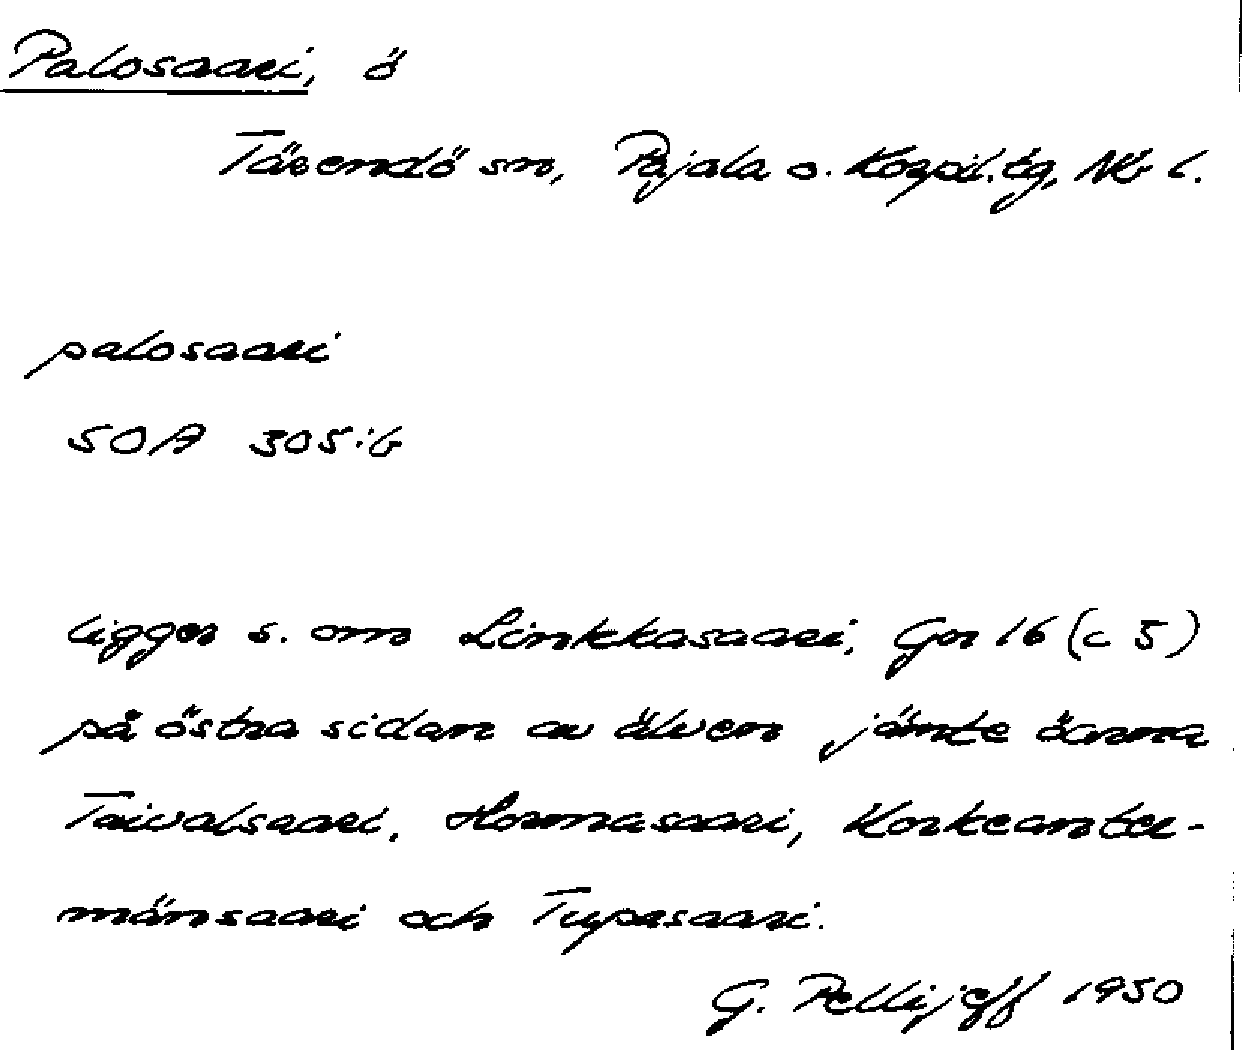 Palosaari, ö
Tärendö sn, Pajala o. Korpil. tg, Nb l.
palosaari
SOA 305:6
ligger s. om Linkkasaari, Gor 16 (c 5)
på östra sidan av älven jämte öarna
Taivalsaari, Hormasaari, Korkeanter-
mänsaari och Tupasaari.
G. Pellijeff 1950